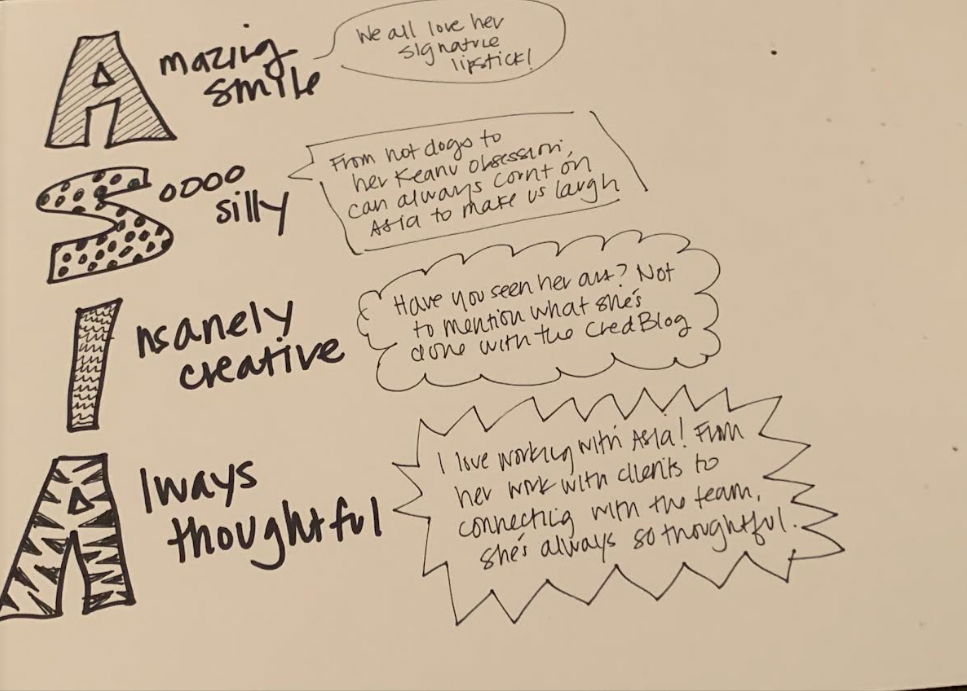 Amazing
smile
We all love her
signature
lipstick!
Soooo
silly
From hot dogs to
her Keanu obsession,
can always count on
Asia to make us laugh
Insanely
creative
Have you seen her art? Not
to mention what she's
done with the CredBlog
Always
thoughtful
I love working with Asia! From
her work with clients to
connecting with the team,
she's always so thoughtful.